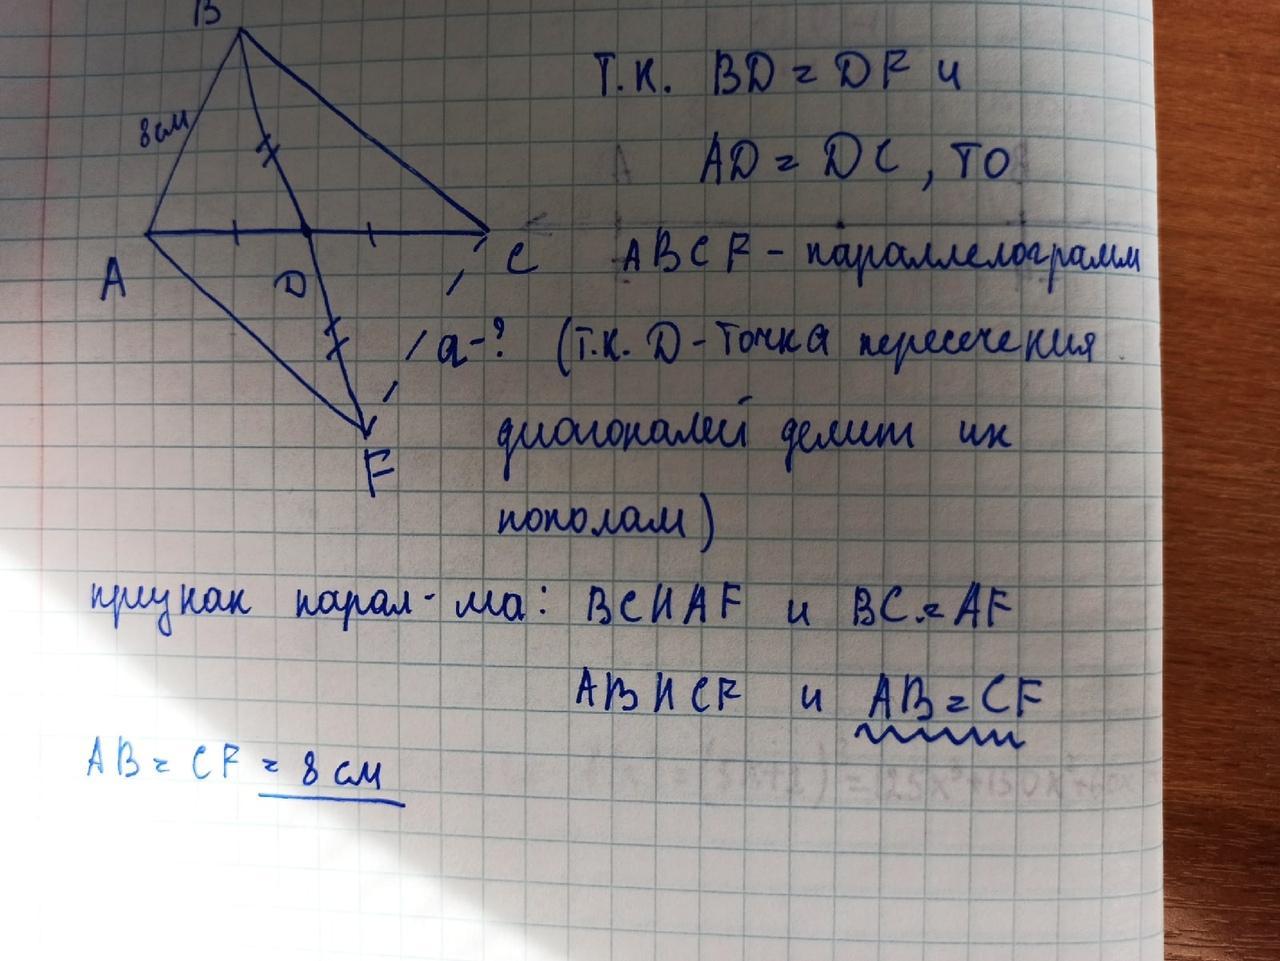 B
Т.К. BD = DF и
8см
AD = DC , ТО
A
D
C
ABCF - параллелограмм
a-? (т.к. D - точка пересечения
диагоналей делит их
F
пополам)
признак парал-ма: BC || AF и BC = AF
AB || CF и AB = CF
AB = CF = 8 см